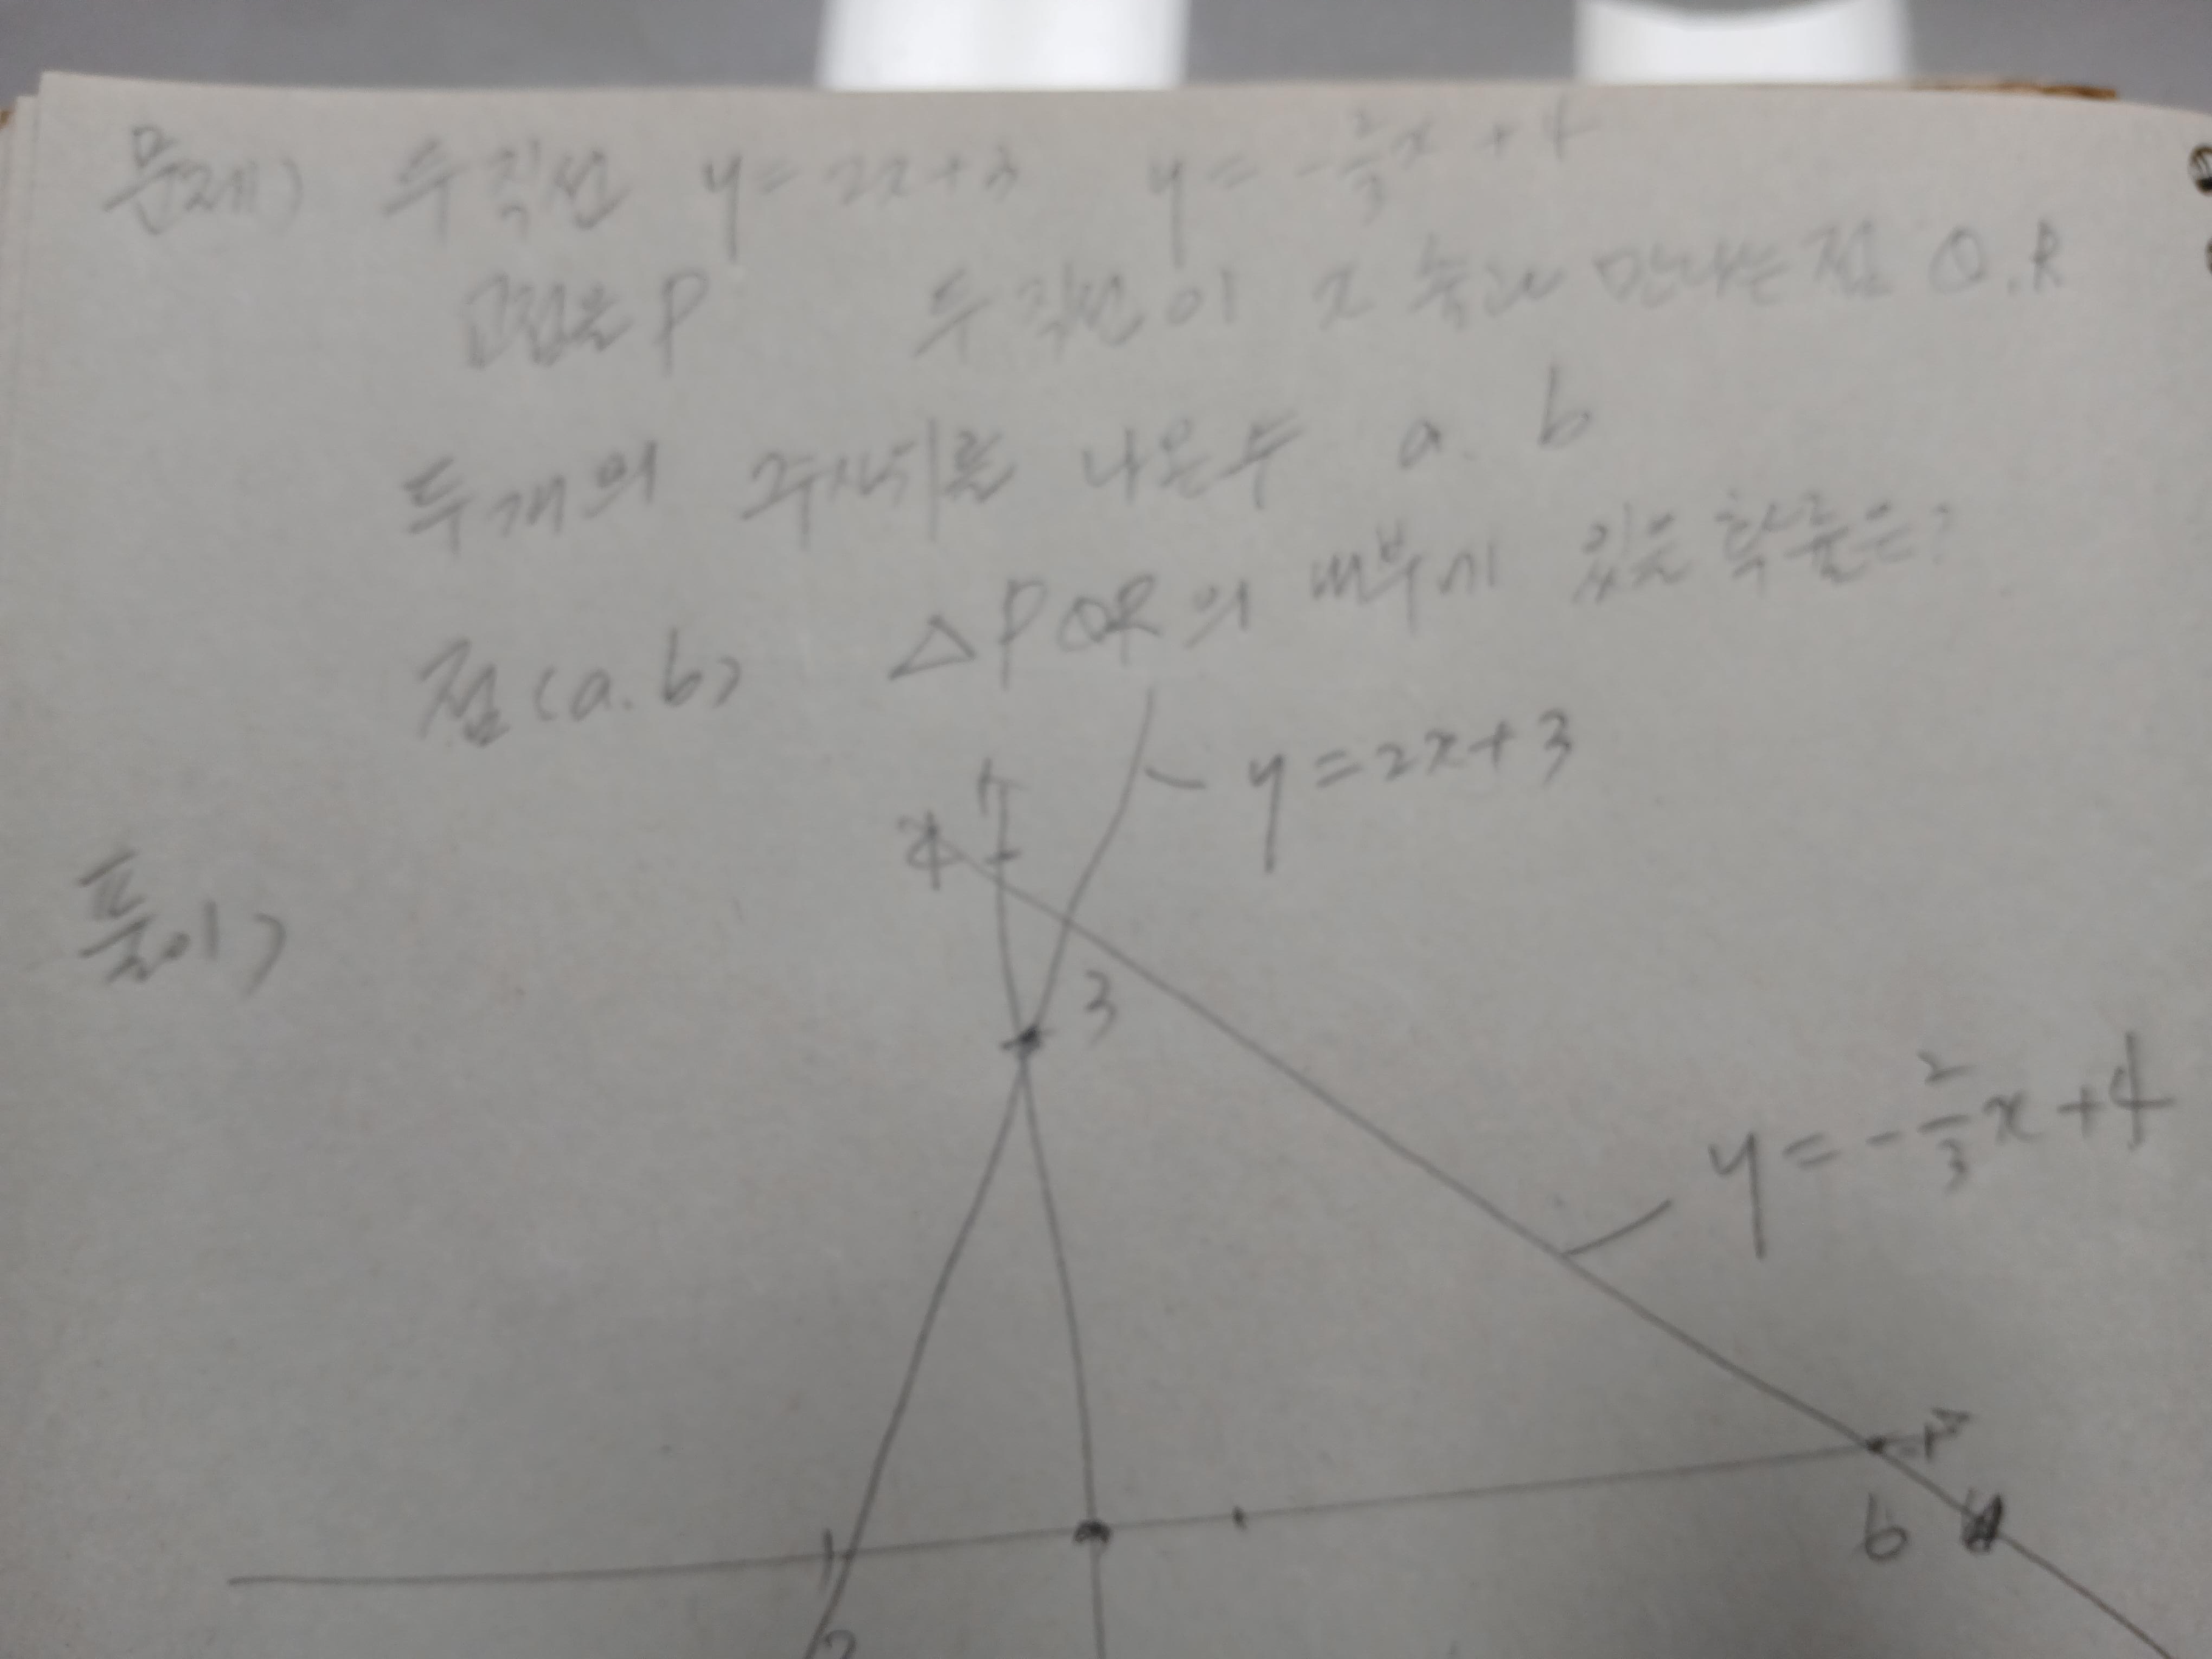 문제) 두 직선 y = 2x + 3 y = -2/3x + 4
교점은 P 두 직선이 x 축과 만나는 점 Q. R
두개의 주사위를 나온수 a. b
점(a. b) △PQR의 내부에 있을 확률은?
y = 2x + 3
4
풀이)
3
y = -2/3x + 4
6